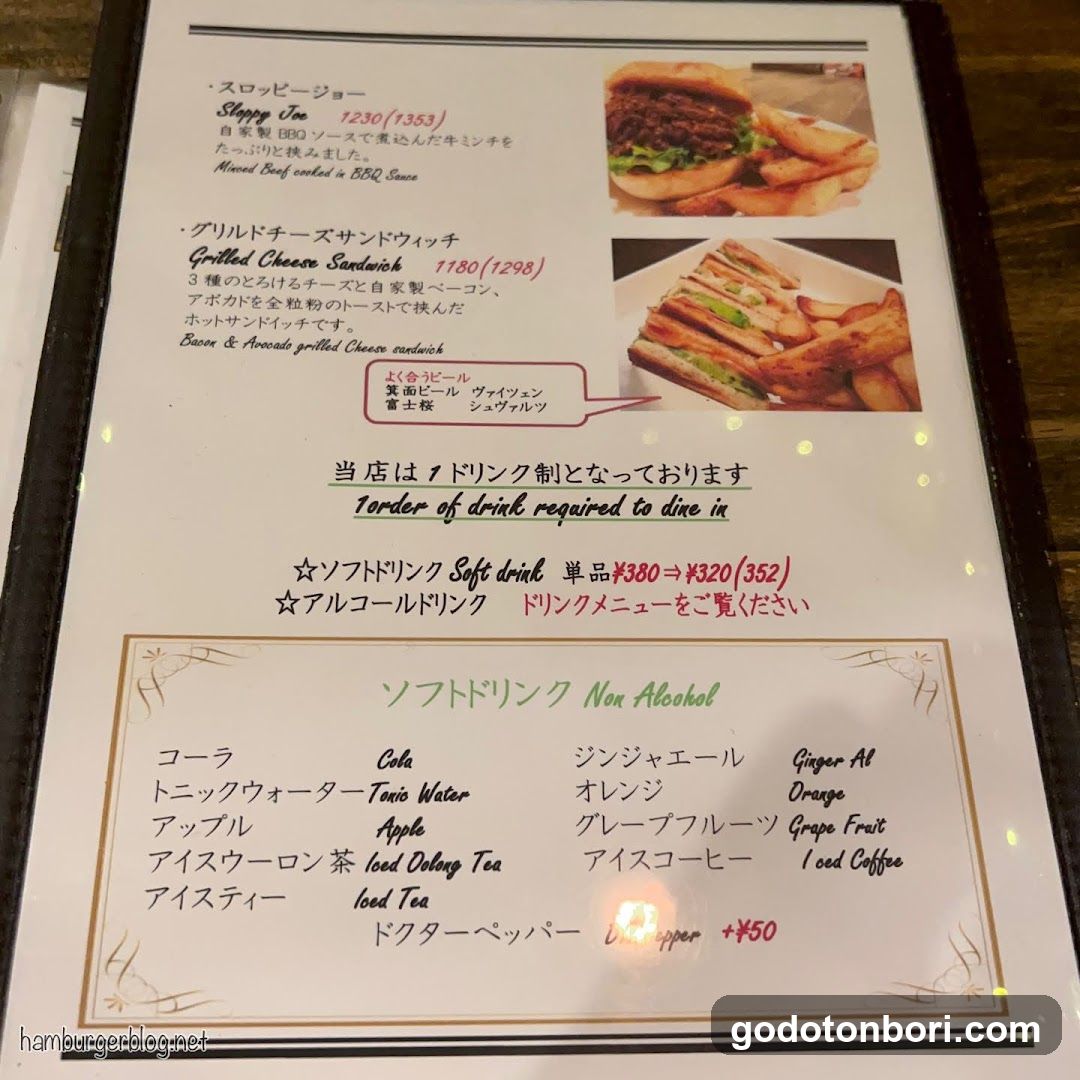 ・スロッピージョー
Sloppy Joe 1230(1353)
自家製BBQソースで煮込んだ牛ミンチを
たっぷりと挟みました。
Minced Beef cooked in BBQ Sauce
・グリルドチーズサンドウィッチ
Grilled Cheese Sandwich 1180(1298)
3種のとろけるチーズと自家製ベーコン、
アボカドを全粒粉のトーストで挟んだ
ホットサンドイッチです。
Bacon & Avocado grilled Cheese sandwich
よく合うビール
箕面ビール ヴァイツェン
富士桜 シュヴァルツ
当店は1ドリンク制となっております
1order of drink required to dine in
☆ソフトドリンク Soft drink 単品¥380⇒¥320(352)
☆アルコールドリンク ドリンクメニューをご覧ください
ソフトドリンク Non Alcohol
コーラ Cola ジンジャエール Ginger Al
トニックウォーター Tonic Water オレンジ Orange
アップル Apple グレープフルーツ Grape Fruit
アイスウーロン茶 Iced Oolong Tea アイスコーヒー Iced Coffee
アイスティー Iced Tea
ドクターペッパー +¥50
hamburgerblog.net
godotonbori.com